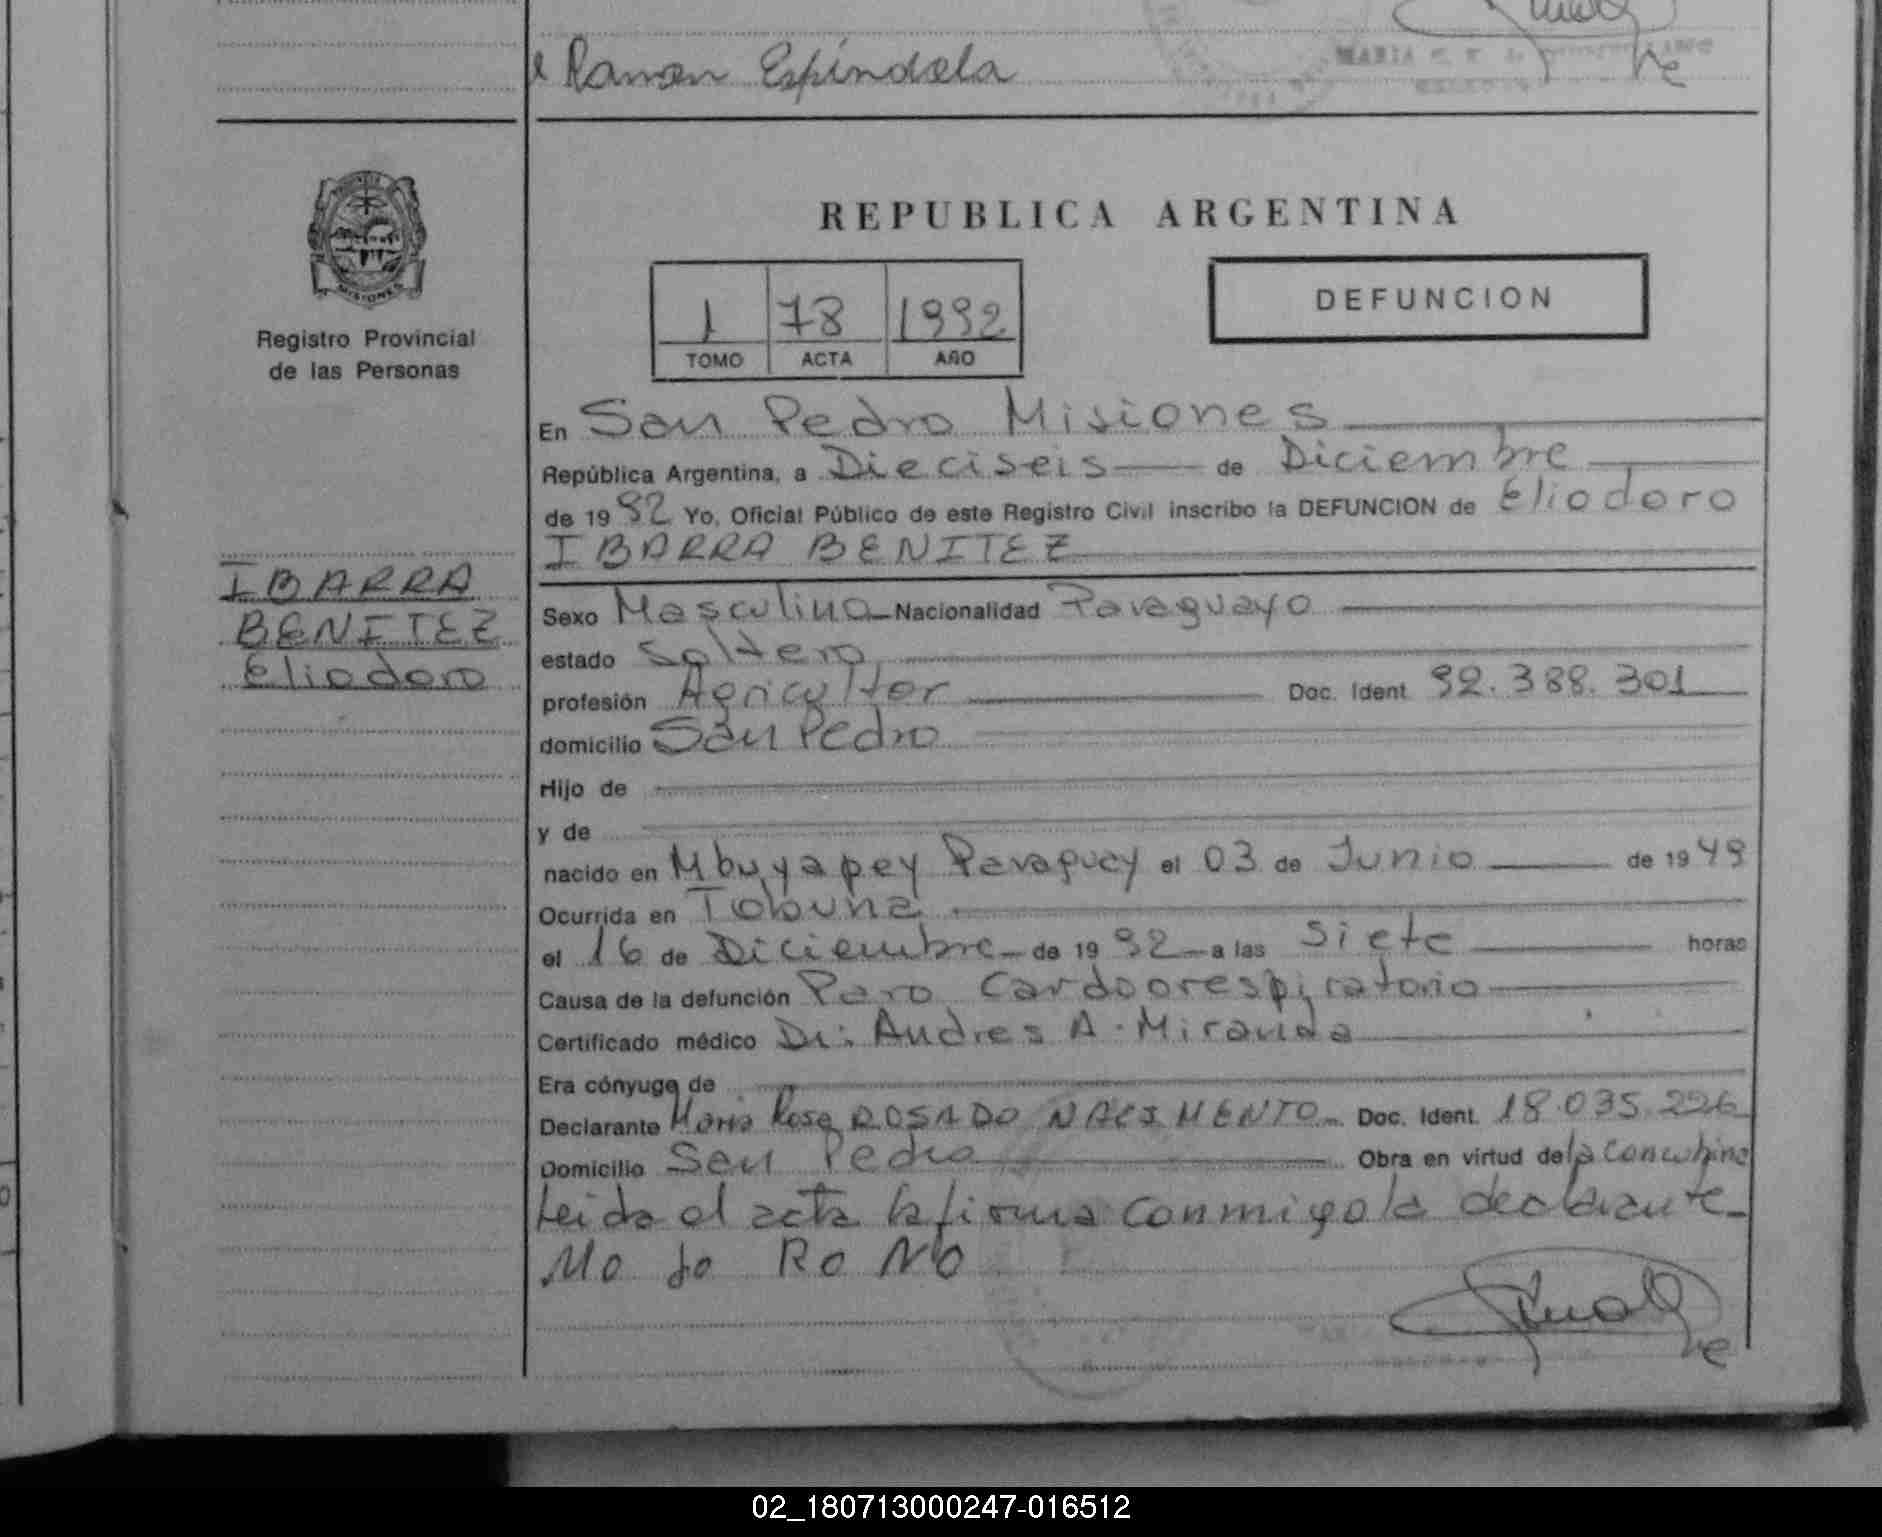 Ramon Espíndola
REPUBLICA ARGENTINA
PROVINCIA
MISIONES
Registro Provincial
de las Personas
1 78 1992
TOMO ACTA AÑO
DEFUNCION
En San Pedro Misiones
República Argentina, a Dieciseis de Diciembre
de 1992 Yo, Oficial Público de este Registro Civil inscribo la DEFUNCION de Eliodoro
IBARRA BENITEZ
IBARRA
BENITEZ
Eliodoro
Sexo Masculino Nacionalidad Paraguayo
estado Soltero
profesión Agricultor Doc. Ident. 92.388.301
domicilio San Pedro
Hijo de
y de
nacido en Mbuyapey Paraguay el 03 de Junio de 1949
Ocurrida en Tobuna
el 16 de Diciembre de 1992 a las Siete horas
Causa de la defunción Paro Cardoorespiratorio
Certificado médico Dr: Andres A. Miranda
Era cónyuge de
Declarante Maria Rosa ROSADO NACIMENTO Doc. Ident. 18.035.226
Domicilio San Pedro Obra en virtud de la Concubina
Leida el acta la firma conmigo la declarante
Ma Ro No
02_180713000247-016512